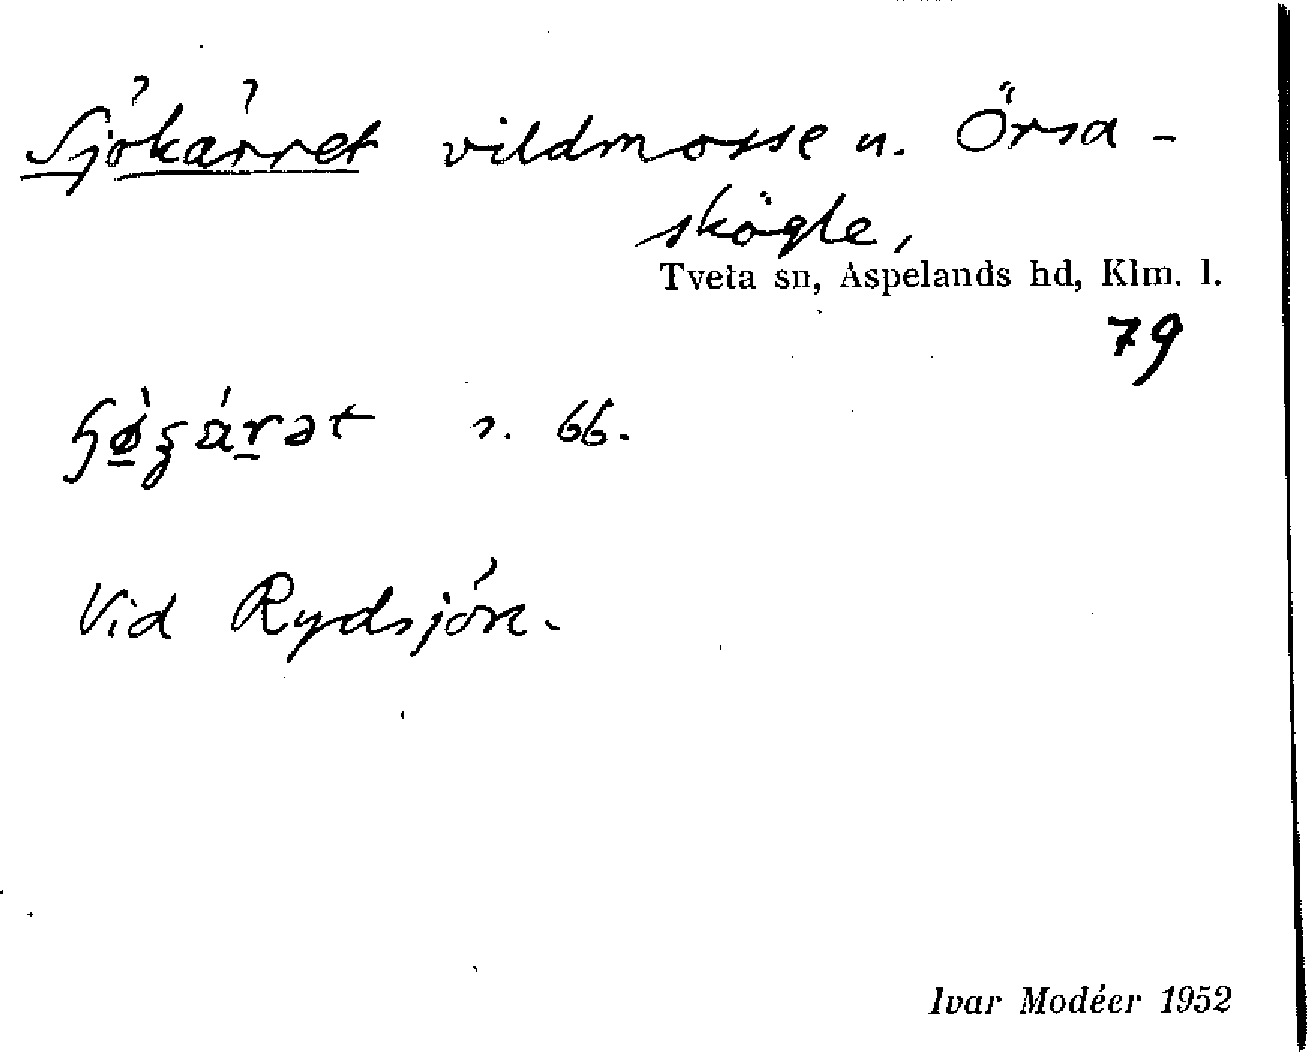 Sjökärret vildmosse n. Örsa-
skögle,
Tveta sn, Aspelands hd, Klm. l.
79
s. 66.
Vid Rydsjön.
Ivar Modéer 1952